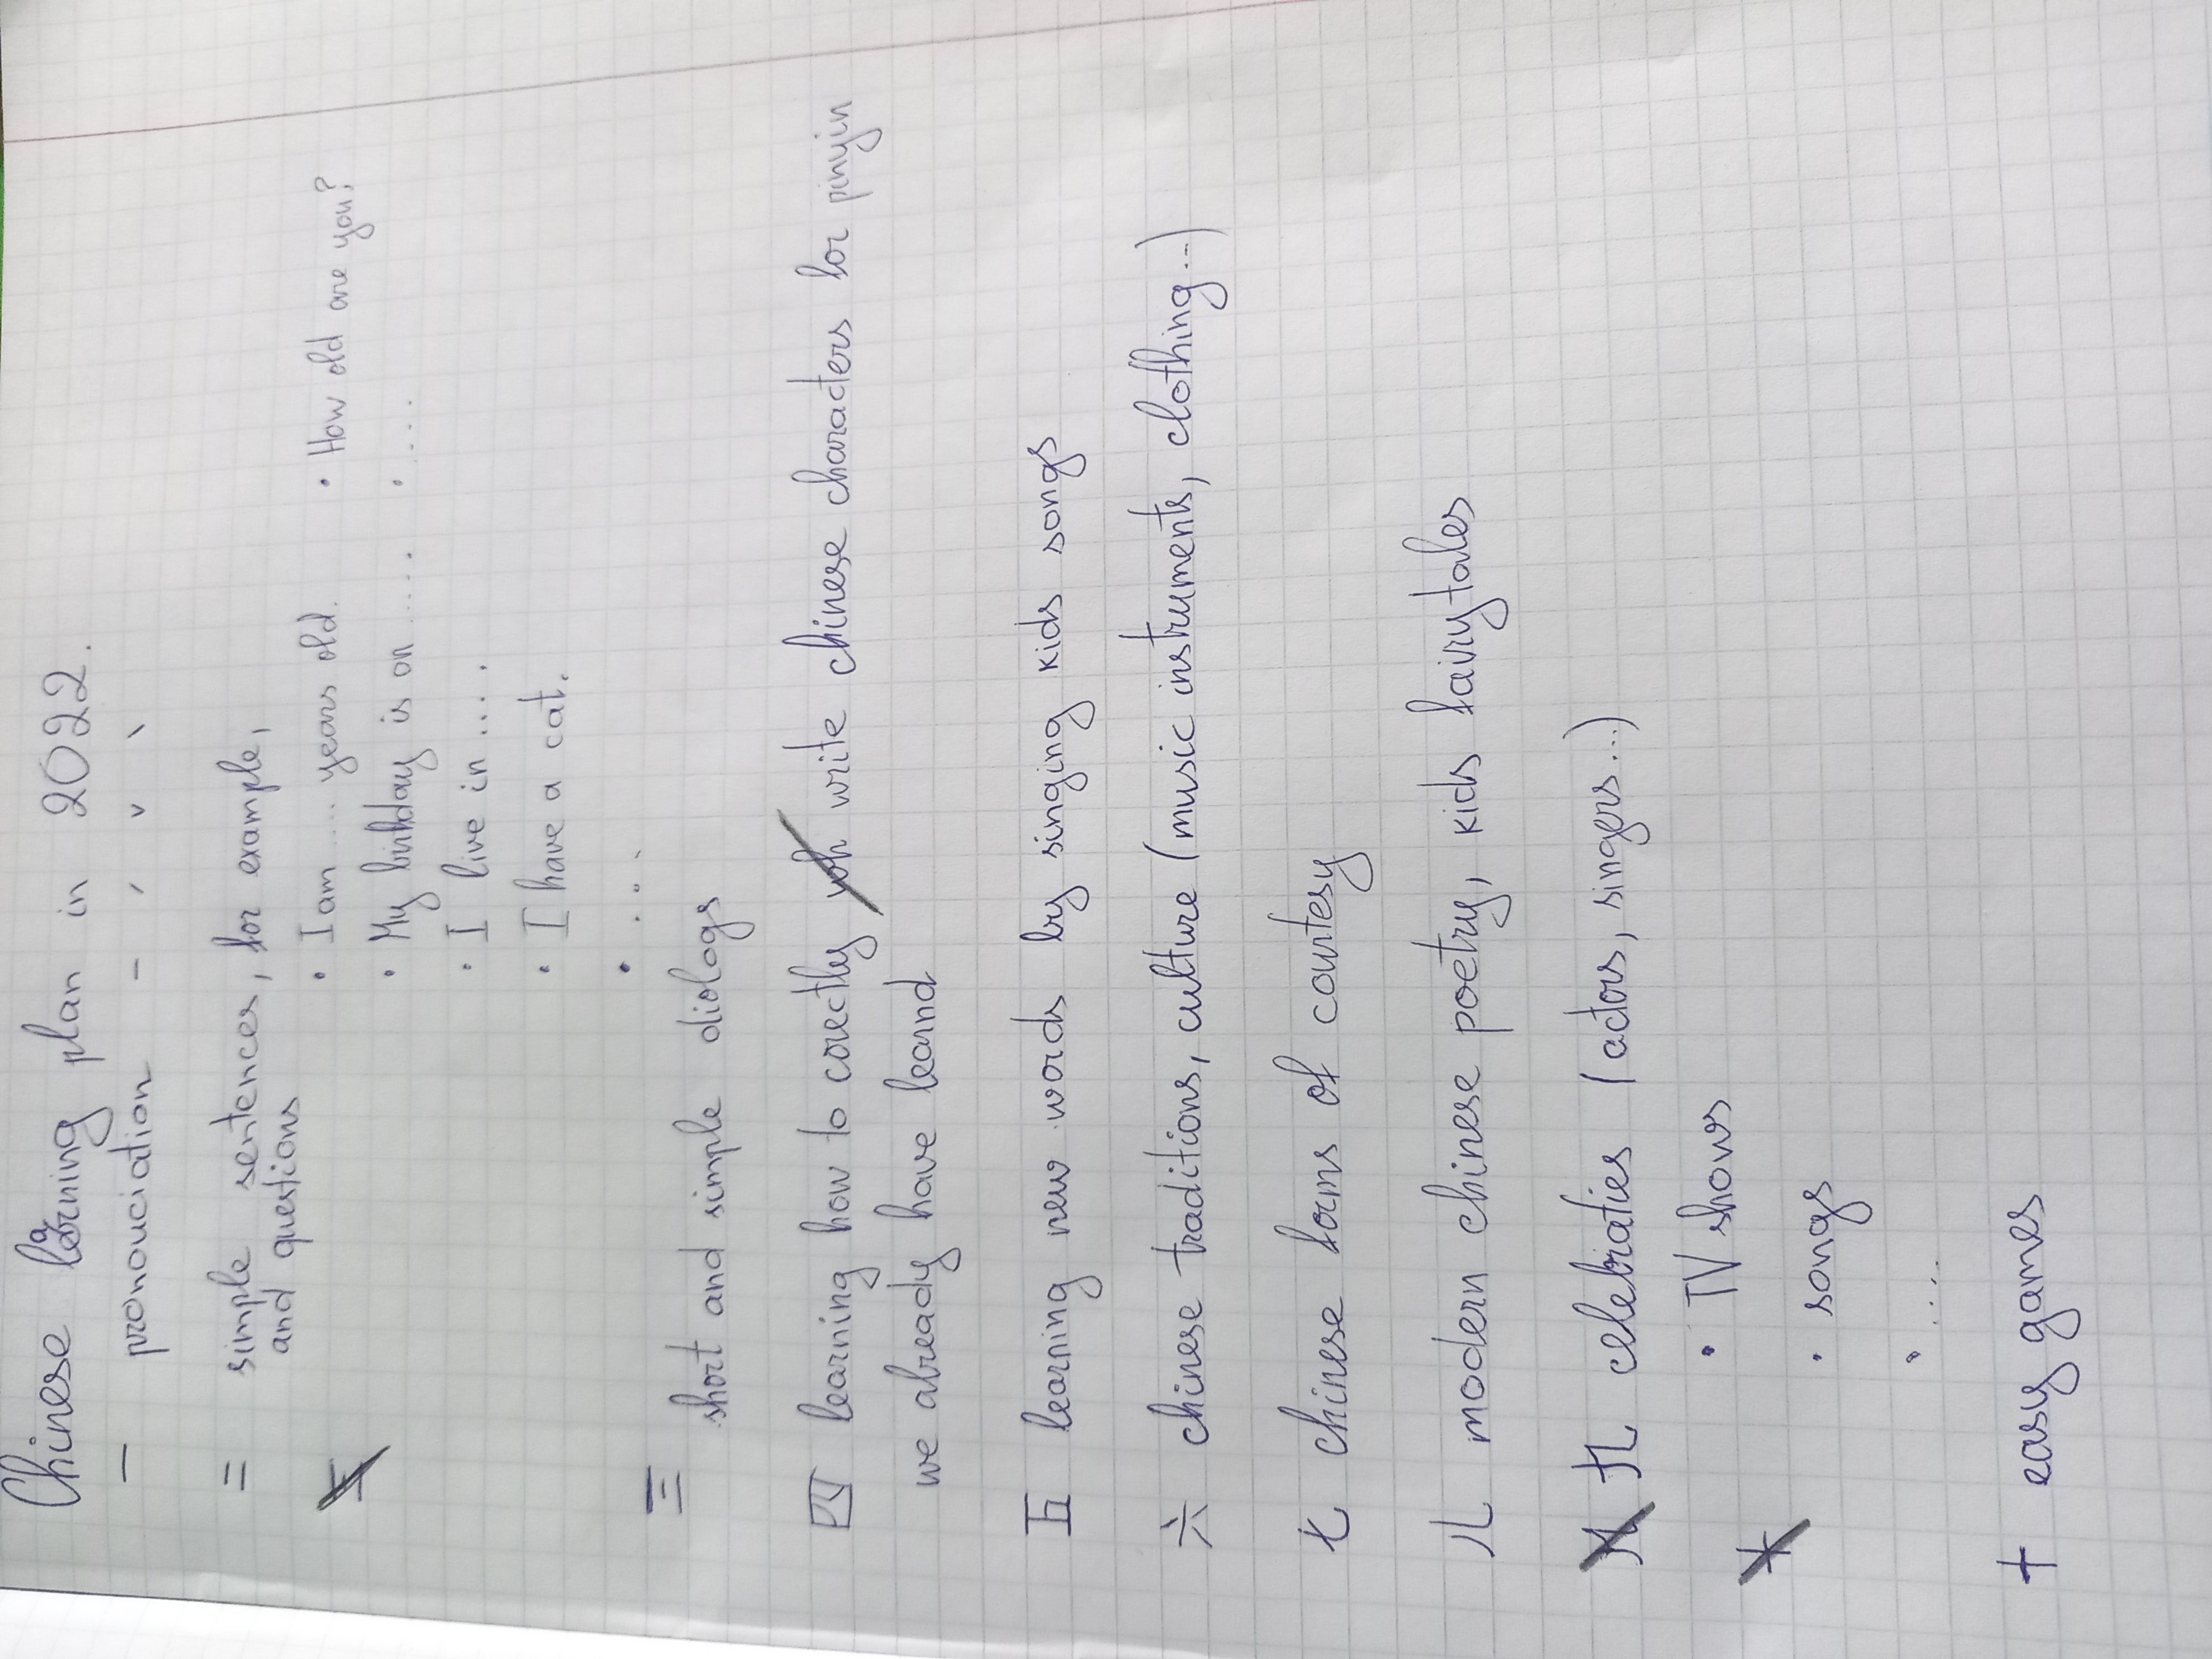 Chinese learning plan in 2022.
一 pronouciation - ˉ ˊ ˇ ˇ ˋ
二 simple sentences, for example,
and questions
• I am .... years old. • How old are you?
• My birthday is on ..... • ....
• I live in ....
• I have a cat.
• ...
三 short and simple diologs
四 learning how to corectly write chinese characters for pinyin
we already have learnd
五 learning new words by singing kids songs
六 chinese traditions, culture (music instruments, clothing...)
七 chinese forms of courtesy
八 modern chinese poetry, kids fairytales
九 celebraties (actors, singers...)
• TV shows
• songs
• ....
十 easy games